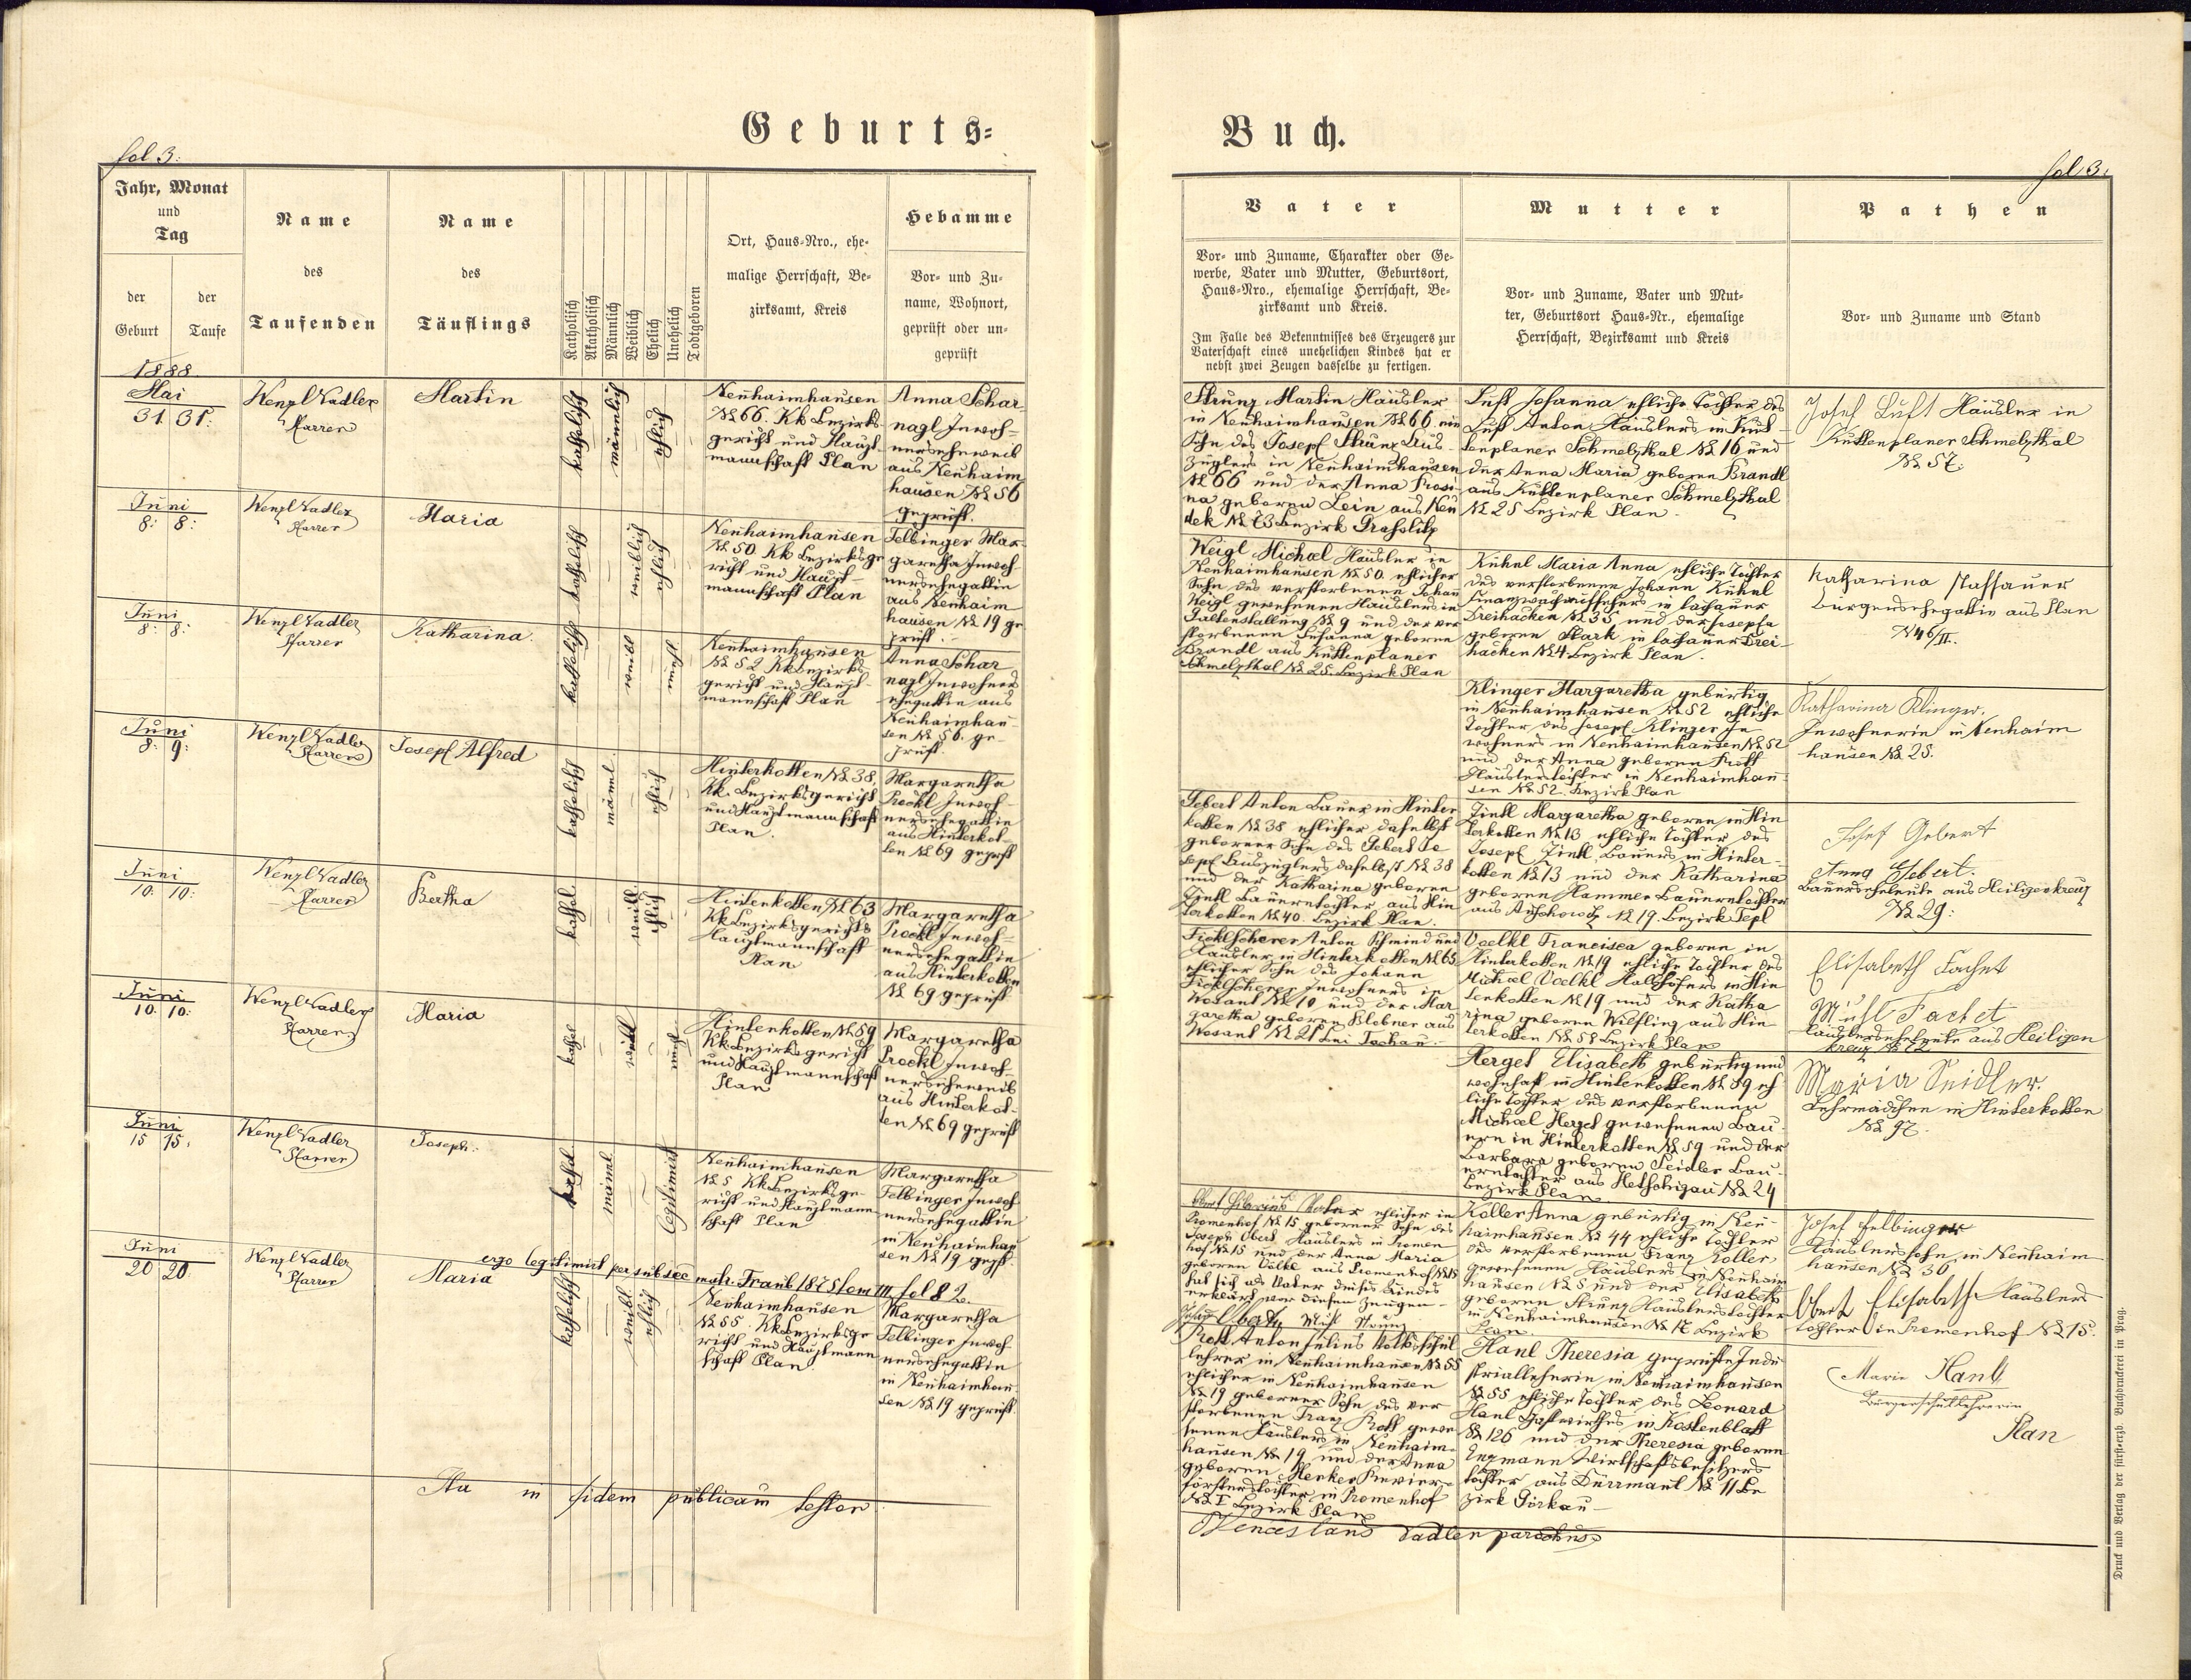 Geburts-
Buch.
fol 3.
fol 3.
Jahr, Monat
und
Tag
der
Geburt
der
Taufe
Name
des
Taufenden
Name
des
Täuflings
Katholisch
Akatholisch
Männlich
Weiblich
Ehelich
Unehelich
Todtgeboren
Ort, Haus-Nro., ehe-
malige Herrschaft, Be-
zirksamt, Kreis
Hebamme
Vor- und Zu-
name, Wohnort,
geprüft oder un-
geprüft
Vater
Vor- und Zuname, Charakter oder Ge-
werbe, Vater und Mutter, Geburtsort,
Haus-Nro., ehemalige Herrschaft, Be-
zirksamt und Kreis.
Im Falle des Bekenntnisses des Erzeugers zur
Vaterschaft eines unehelichen Kindes hat er
nebst zwei Zeugen dasselbe zu fertigen.
Mutter
Vor- und Zuname, Vater und Mut-
ter, Geburtsort Haus-Nr., ehemalige
Herrschaft, Bezirksamt und Kreis
Pathen
Vor- und Zuname und Stand
1888
Mai
31. 31.
Wenzl Vadler
Pfarrer
Martin
katholisch
männlich
ehlich
Neuhaimhausen
N 66. KK Bezirks-
gericht und Haupt-
mannschaft Plan
Anna Schar
nagl Inwoh-
nerseheweib
aus Neuhaim
hausen N 56
geprüft.
Strunz Martin Häusler
in Neuhaimhausen N 66 ein
Sohn des Josef Strunz Aus-
züglers in Neuhaimhausen
N 66 und der Anna Rosi-
na geboren Lein aus Neu
dek N 73 Bezirk Grasslitz
Luft Johanna ehliche Tochter des
Luft Anton Häuslers in Kut-
tenplaner Schmelzthal N 16 und
der Anna Maria geboren Brandl
aus Kuttenplaner Schmelzthal
N 25 Bezirk Plan
Josef Luft Häusler in
Kuttenplaner Schmelzthal
N 57.
Juni
8. 8.
Wenzl Vadler
Pfarrer
Maria
katholisch
weiblich
ehlich
Neuhaimhausen
N 50. KK Bezirksge
richt und Haupt-
mannschaft Plan
Felbinger Mar-
garetha Inwoh-
nersehegattin
aus Neuhaim
hausen N 19 ge
prüft.
Weigl Michael Häusler in
Neuhaimhausen N 50. ehlicher
Sohn des verstorbenen Johan
Weigl gewesenen Häuslers in
N 9 und der ver
storbenen Susanna geboren
Brandl aus Kuttenplaner
Schmelzthal N 25. Bezirk Plan
Kühnl Maria Anna ehliche Tochter
des verstorbenen Johann Kühnl
Finanzwachaufsehers in
Dreihacken N 35 und der Josepha
geboren Stark in Drei-
hacken N 4 Bezirk Plan.
Katharina Passauer
Bürgersehegattin aus Plan
N 46/II.
Juni
8. 8.
Wenzl Vadler
Pfarrer
Katharina.
katholisch
weibl
unehl
Neuhaimhausen
N 52 KK Bezirks
gericht und Haupt-
mannschaft Plan
Anna Schar
nagl Inwohners
ehegattin aus
Neuhaimhau
sen N 56. ge-
prüft.
Klinger Margaretha gebürtig
in Neuhaimhausen N 52 ehliche
Tochter des Josef Klinger In
wohners in Neuhaimhausen N 52
und der Anna geboren Kroff
Häuslerstochter in Neuhaimhau-
sen N 52. Bezirk Plan
Katharina Klinger.
Inwohnerin in Neuhaim
hausen N 25.
Juni
8. 9.
Wenzl Vadler
Pfarrer
Josepf Alfred
katholisch
mänl.
ehlich
Hinterkotten N 38.
KK. Bezirksgericht
und Hauptmannschaft
Plan.
Margaretha
Prockl Inwoh-
nersehegattin
aus Hinterkot-
ten N 69 geprft
Gebert Anton Bauer in Hinter
kotten N 38 ehlicher daselbst
geborner Sohn des Gebert Jo
sepf Auszüglers daselbst N 38
und der Katharina geboren
Zintl Bauerntochter aus Hin
terkotten N 40. Bezirk Plan.
Zintl Margaretha geboren in Hin
terkotten N 13 ehliche Tochter des
Josepf Zintl Bauers in Hinter-
kotten N 13 und der Katharina
geboren Hammer Bauerntochter
aus N 19. Bezirk Tepl
Josef Gebert
Anna Gebert.
Bauersehleute aus Heiligenkreuz
N 29:
Juni
10. 10.
Wenzl Vadler
Pfarrer
Bertha
kathol.
weibl
ehlich
Hinterkotten N 63
KK Bezirksgerichts
Hauptmannschaft
Plan
Margaretha
Prockl Inwoh-
nersehegattin
aus Hinterkotten
N 69 geprüft
Ficklscherer Anton Schmied und
Häusler in Hinterkotten N 63
ehlicher Sohn des Johann
Ficklscherer Inwohners in
Wosant N 10 und der Mar
garetha geboren Blobner aus
Wosant N 21 bei Tachau.
Voelkl Francisca geboren in
Hinterkotten N 19 ehliche Tochter des
Michael Voelkl Halbhöfers in Hin
terkotten N 19 und der Katha
rina geboren Wilfling aus Hin
terkotten N 58 Bezirk Plan
Elisabeth Fachet
Michl Fachet
Häuslersehleute aus Heiligen
kreuz N 72
Juni
10. 10.
Wenzl Vadler
Pfarrer
Maria
kathol
weibl
unehl
Hinterkotten N 59
KK Bezirksgericht
und Hauptmannschaft
Plan
Margaretha
Prockl Inwoh-
nersehweib
aus Hinterkot-
ten N 69 geprüft
Herget Elisabeth gebürtig und
wohnhaft in Hinterkotten N 59 eh
liche Tochter des verstorbenen
Michael Herget gewesenen Bau-
ern in Hinterkotten N 59 und der
Barbara geboren Seidler Bau-
erntochter aus N 24
Bezirk Plan
Maria Seidler.
Lehrmädchen in Hinterkotten
N 97.
Juni
15 15.
Wenzl Vadler
Pfarrer
Joseph.
kathol.
mänl
legitimirt
Neuhaimhausen
N 5 KK Bezirksge-
richt und Hauptmann
schaft Plan
Margaretha
Felbinger Inwoh
nersehegattin
in Neuhaimhau
sen N 19 geprft.
ergo legitimirt per subsec matr. Traub. 1875 tom III fol 82.
ehlicher in
Promenhof N 15 geborner Sohn des
Joseph Obert Häuslers in Promen
hof N 15 und der Anna Maria
geboren Völkl aus Promenhof N 18
hat sich als Vater dieses Kindes
erklärt vor diesen Zeugen -
Koller Anna gebürtig in Neu-
haimhausen N 44 ehliche Tochter
des verstorbenen Franz Koller
gewesenen Häuslers in Neuhaim
hausen N 5 und der Elisabeth
geboren Strunz Häuslerstochter
in Neuhaimhausen N 17 Bezirk
Plan.
Josef Felbinger
Häuslerssohn in Neuhaim
hausen N 36
Obert Elisabeth Häuslers
tochter in Promenhof N 15.
Juni
20 20.
Wenzl Vadler
Pfarrer
Maria
katholisch
weibl
ehlich
Neuhaimhausen
N 55. KK Bezirksge
richt und Hauptmann
schaft Plan
Margaretha
Felbinger Inwoh
nersehegattin
in Neuhaimhau
sen N 19 geprüft.
Kroff Anton Julius Volksschul
lehrer in Neuhaimhausen N 55
ehlicher in Neuhaimhausen
N 19 geborner Sohn des ver
storbenen Franz Kroff gewe
senen Häuslers in Neuhaim-
hausen N 19 und der Anna
geboren Menker Revier-
försterstochter in Promenhof
N 1 Bezirk Plan
Hanl Theresia geprüfte Indu
striallehrerin in Neuhaimhausen
N 55 ehliche Tochter des Leonard
Hanl Gastwirthes in Kostenblatt
N 126 und der Theresia geboren
Engmann Wirtschaftsbesitzers
tochter aus Dürrmaul N 11 Be
zirk Görkau
Marie Hanl
Bürgerschullehrerin
Plan
Ita in fidem publicam testor.
Venceslaus Vadler parochus
Druck und Verlag der fürsterzb. Buchdruckerei in Prag.